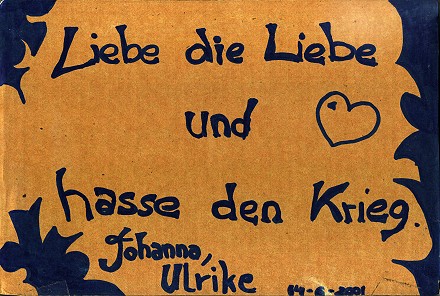 Liebe die Liebe
und
hasse den Krieg.
Johanna,
Ulrike
14-6-2001